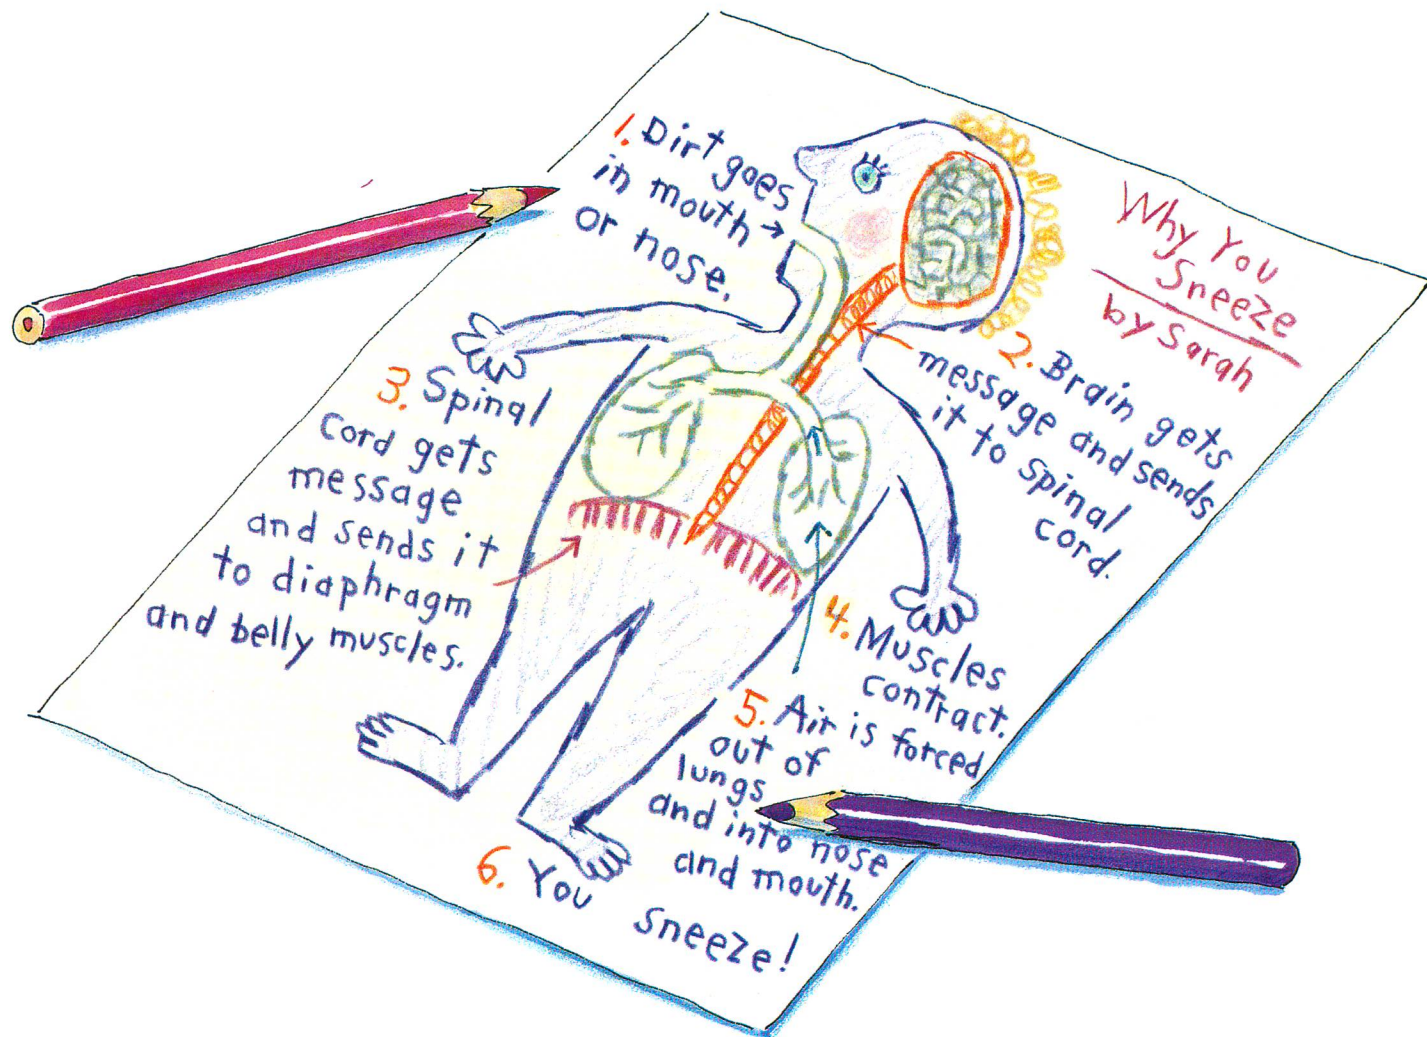 Why You
Sneeze
by Sarah
1. Dirt goes
in mouth →
or nose.
2. Brain gets
message and sends
it to spinal
cord.
3. Spinal
cord gets
message
and sends it
to diaphragm
and belly muscles.
4. Muscles
contract.
5. Air is forced
out of
lungs
and into nose
and mouth.
6. You sneeze!